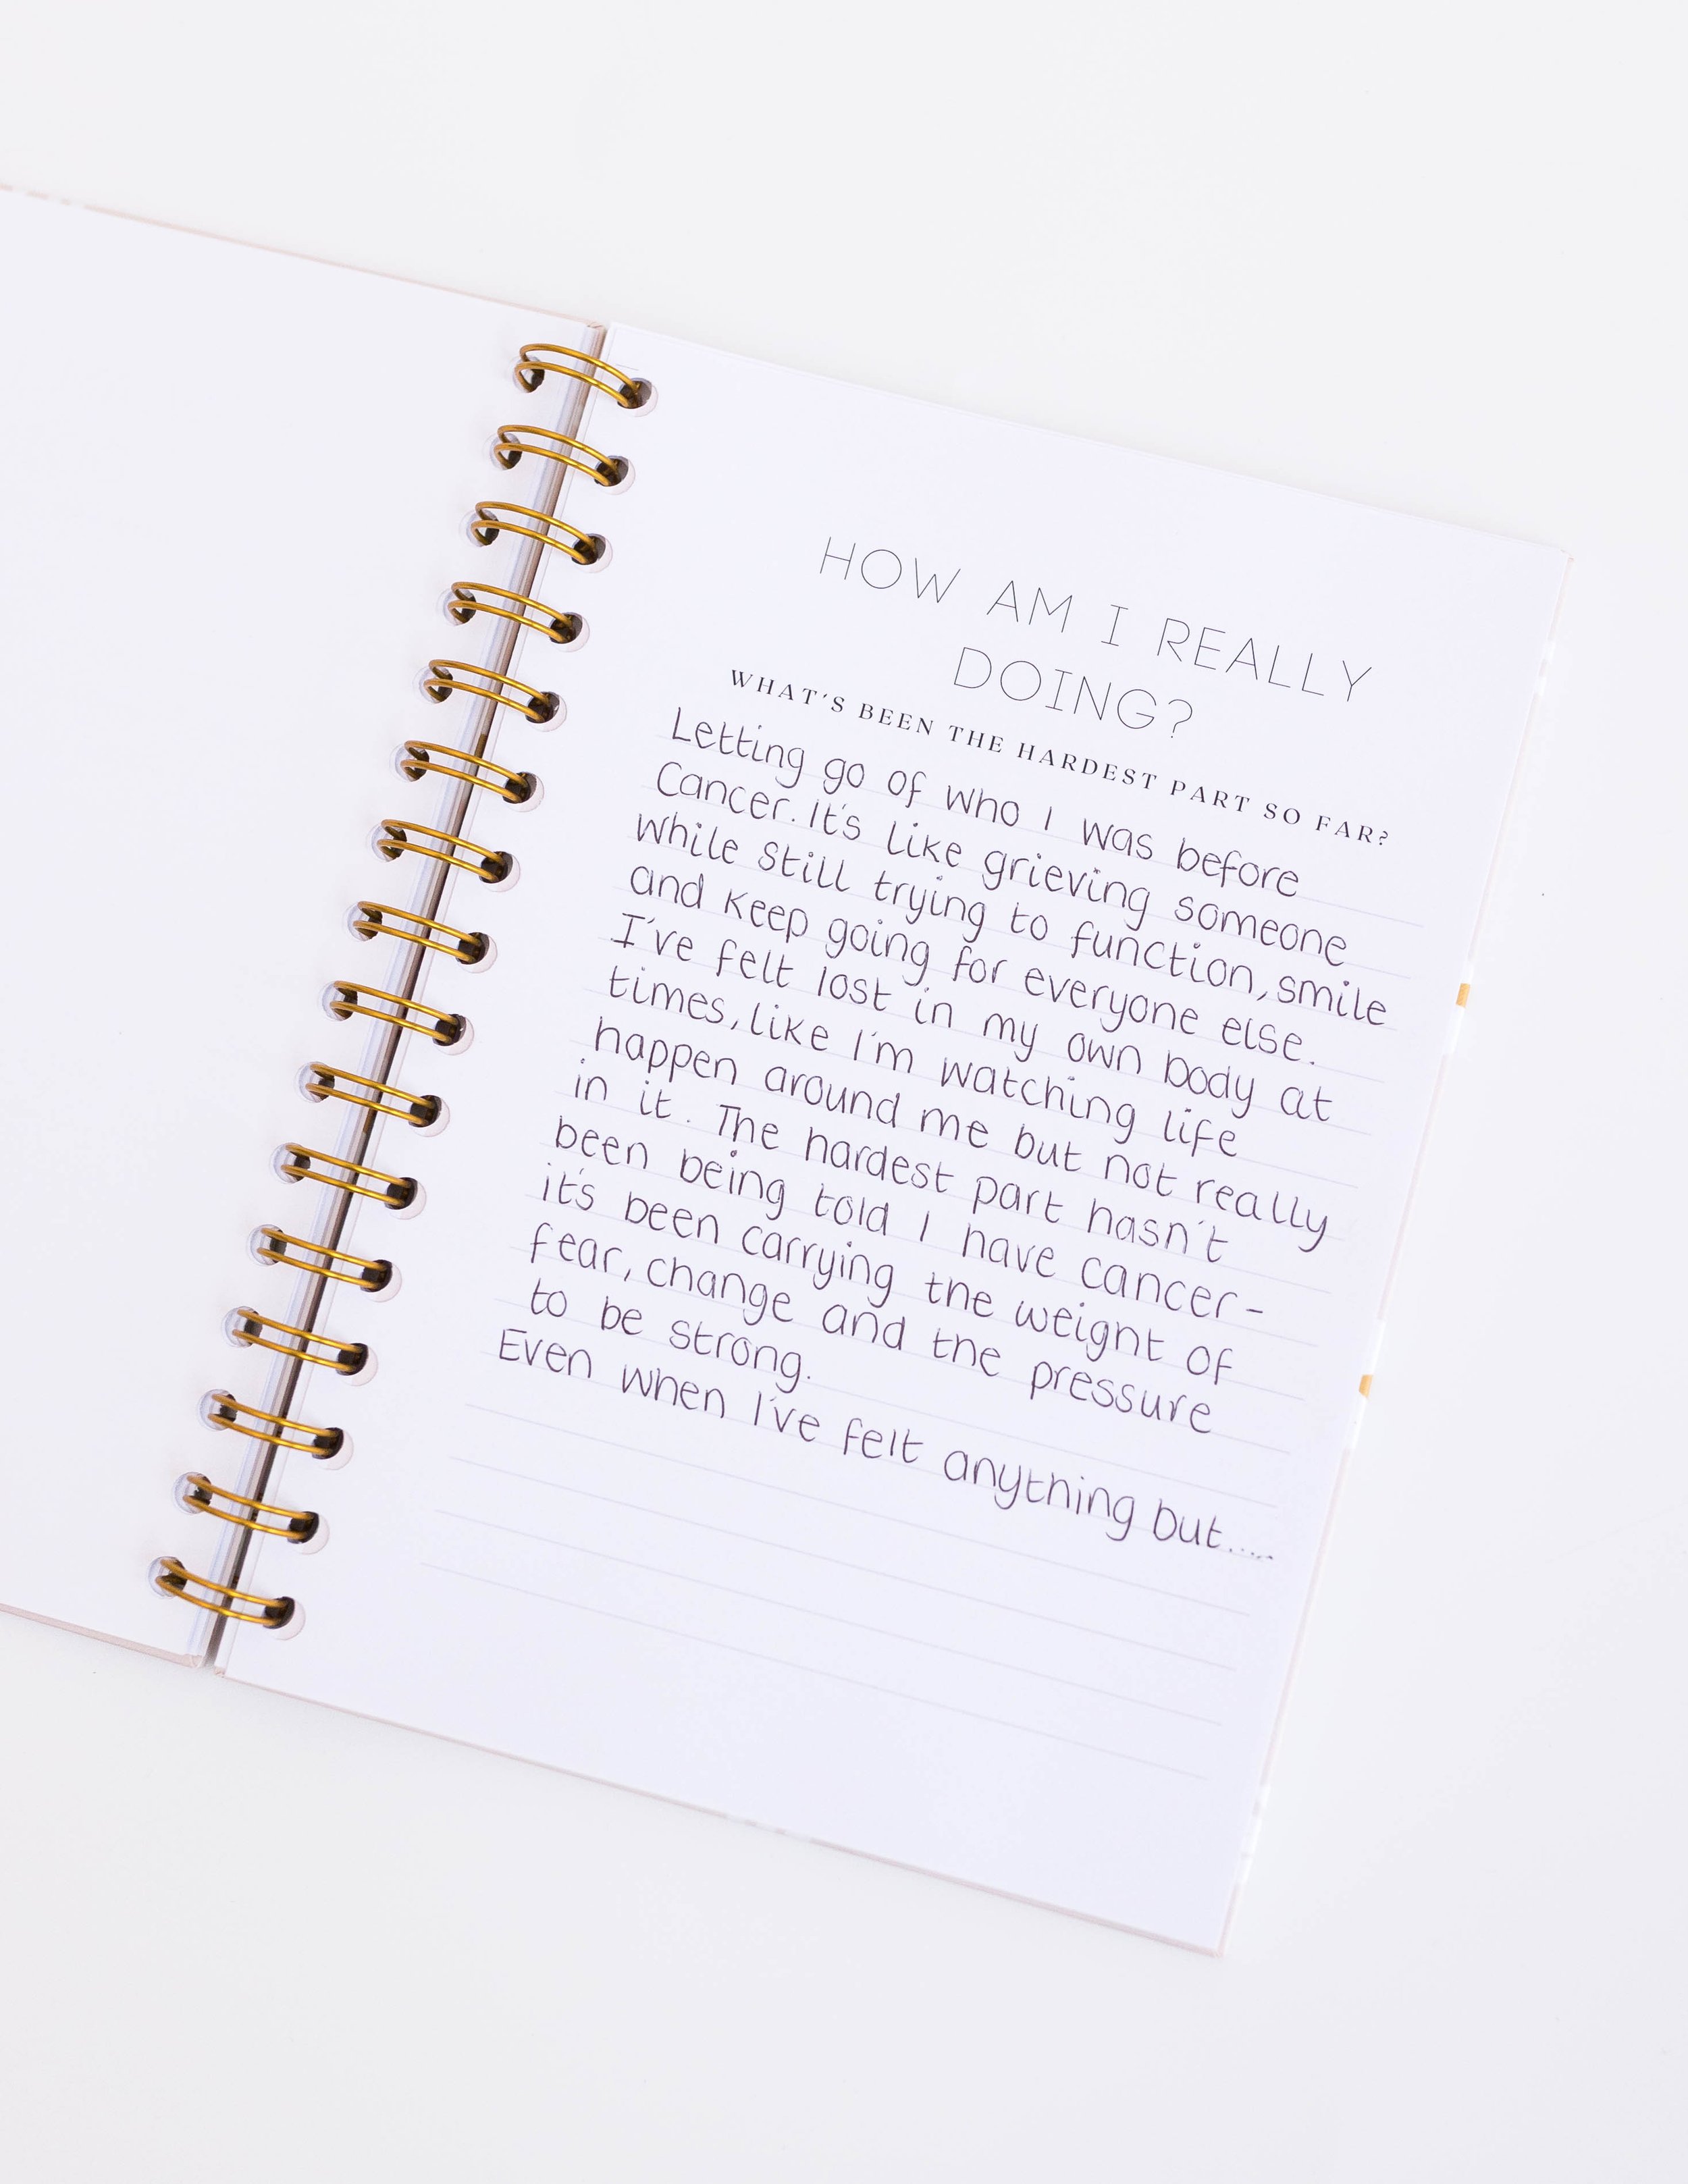 HOW AM I REALLY
DOING?
WHAT'S BEEN THE HARDEST PART SO FAR?
Letting go of who I was before
Cancer. It's like grieving someone
while still trying to function, smile
and keep going for everyone else.
I've felt lost in my own body at
times, like I'm watching life
happen around me but not really
in it. The hardest part hasn't
been being told I have cancer-
it's been carrying the weight of
fear, change and the pressure
to be strong.
Even when I've felt anything but.....